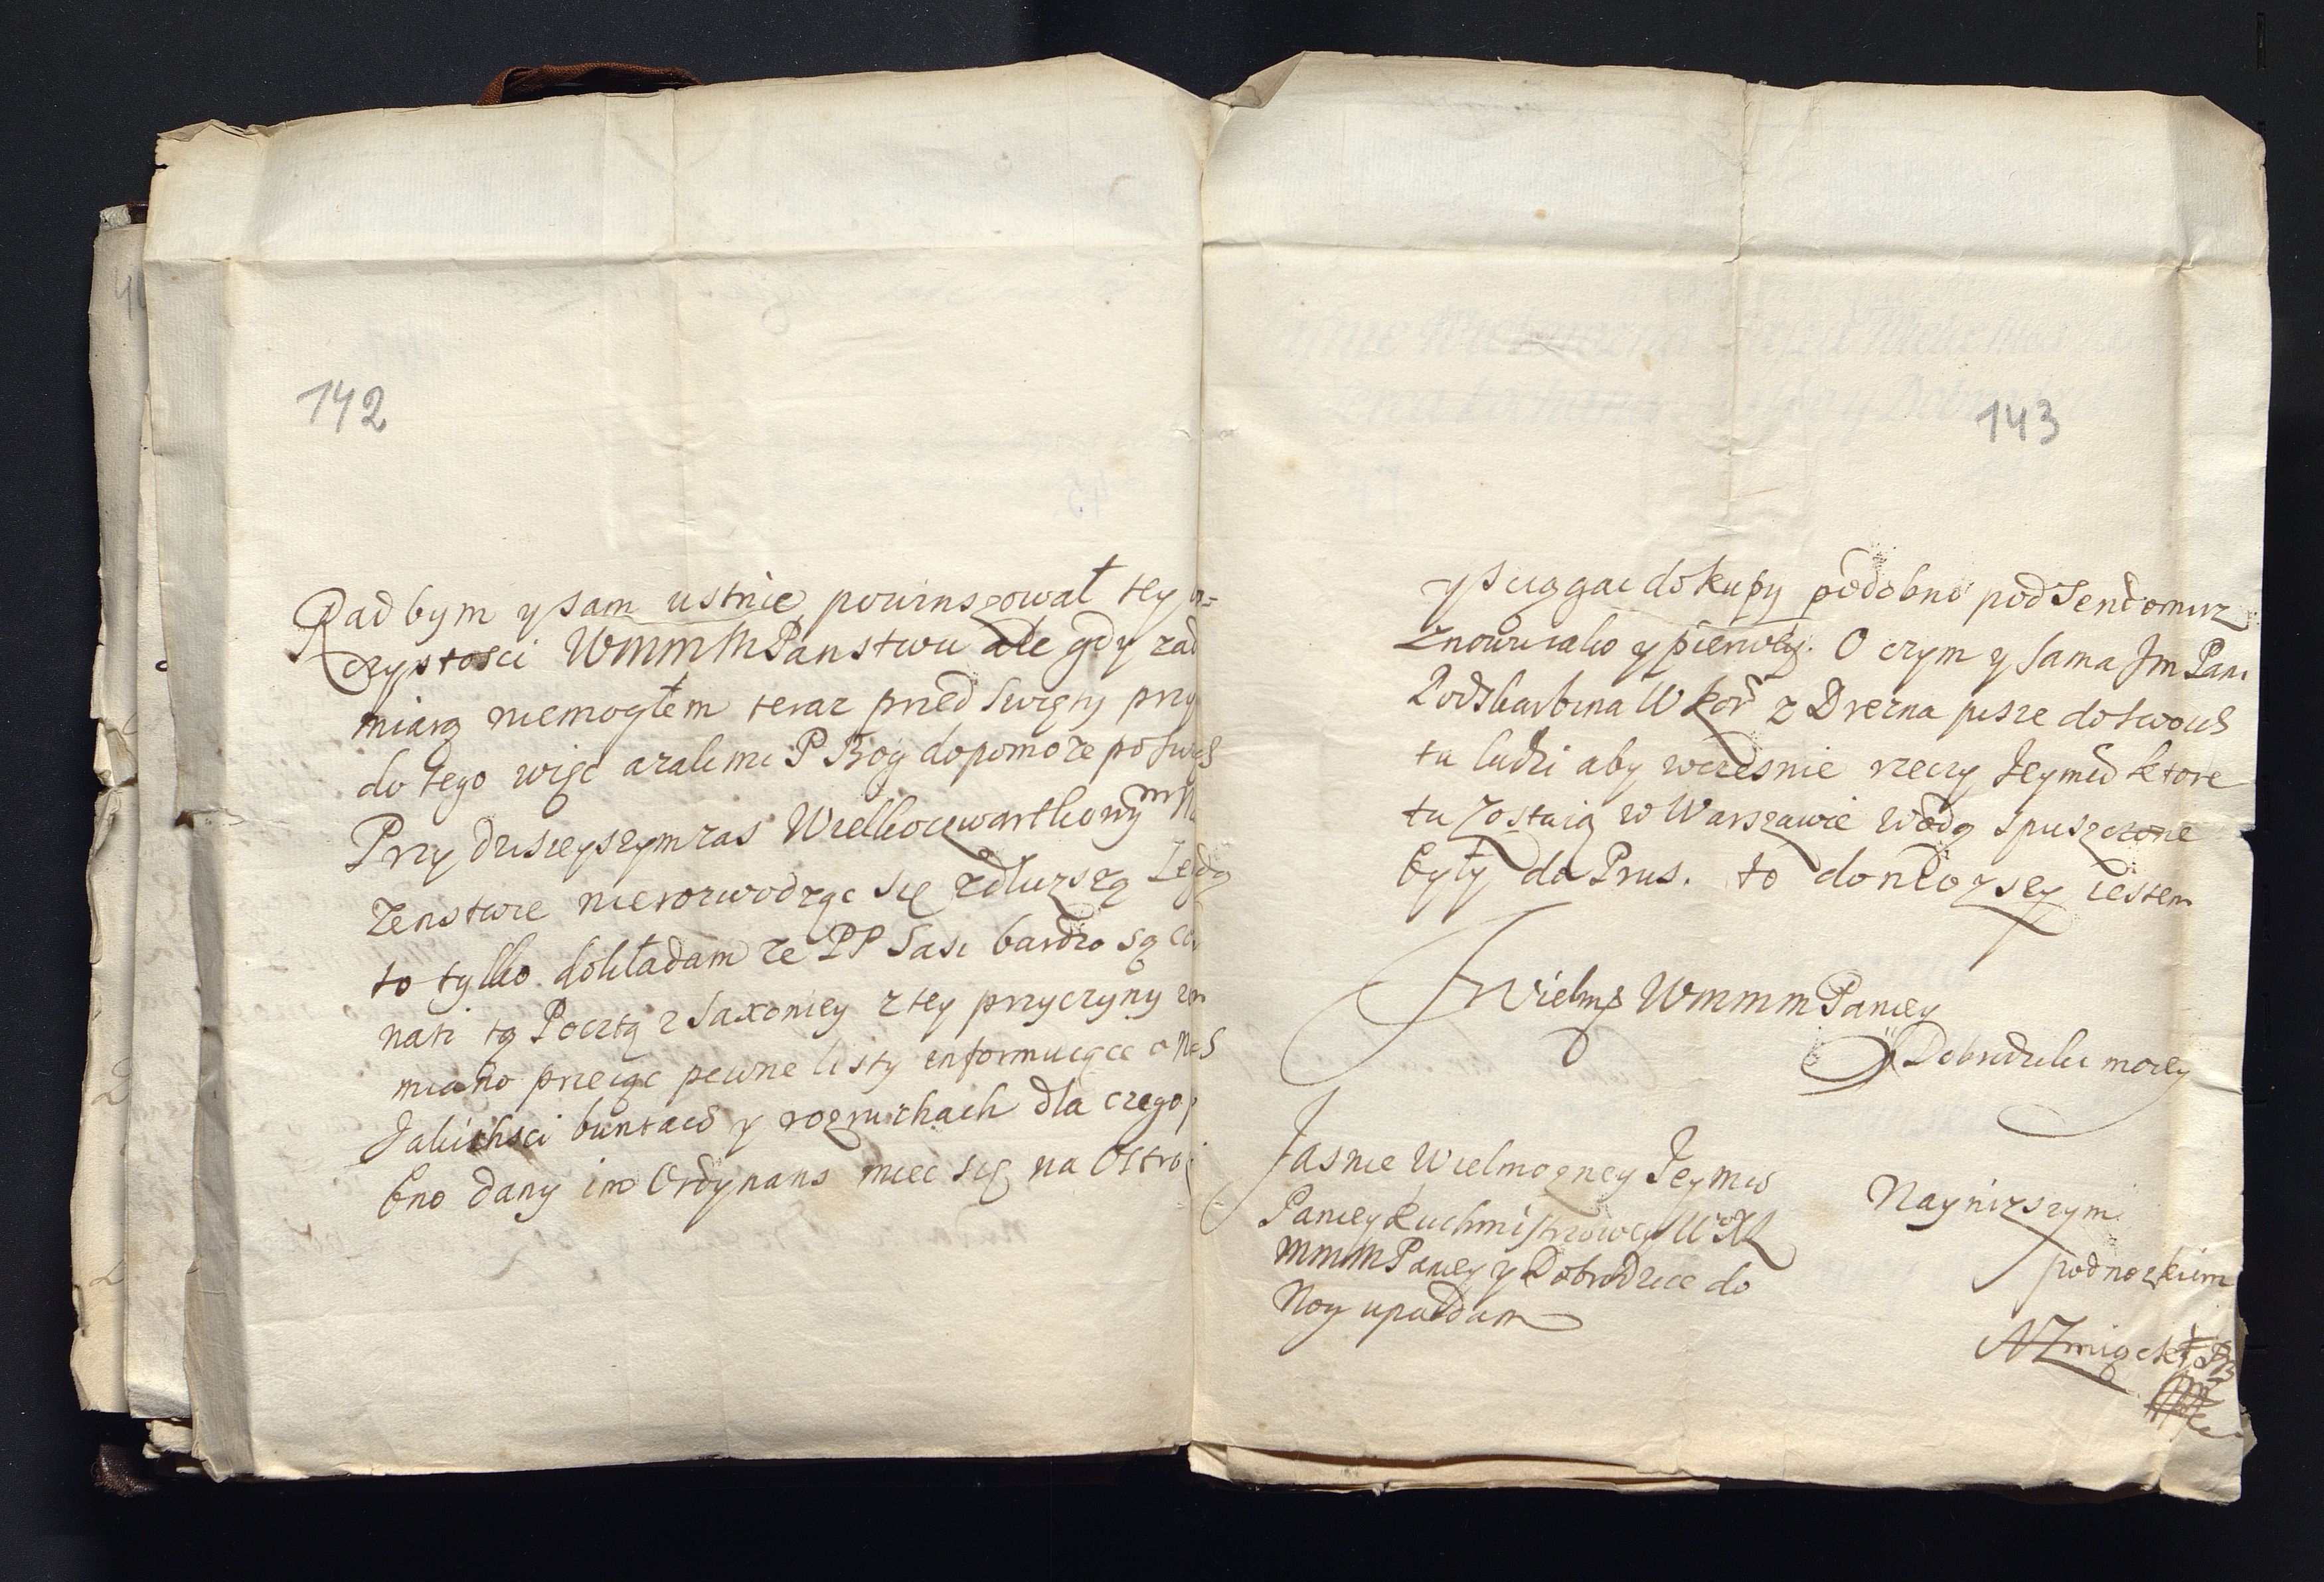 142
Rad bym y sam ustnie powinszował tey u=
czystosci WMMM Panstwu ale gdy zad
miarą niemogłem teraz przed Swięty przy
do tego więc azali mi P Bog dopomoze po Swię
Przy dzisieyszym zas Wielkoczwartkowym Na
zenstwie nierozwodząc się z dłuzszą
to tylko dokładam ze PP Sasi bardzo są
nati tą Pocztą z Saxoniey z tey przyczyny
miano przeiąc pewne listy informuiące o
Jakichsci buntach y rozruchach dla czego p
bno dany im Ordynans miec się na Ostroz
143
y sciągac do kupy podobno pod Sendomirz
znowu iako y pierwey. O czym y sama Jm Pani
Podskarbina W Kor z Drezna pisze do swoich
tu ludzi aby wczesnie rzeczy Jeymci ktore
tu zostaią w Warszawie wodą spuszczone
były do Prus. to doniozszy iestem
JWielmż WMMM Paniey
y Dobrodziki moiey
Jasnie Wielmozney Jeymci
Paniey Kuchmistrzowey WXL
MMM Paniey y Dobrodzice do
Nog upadam
Nayniższym
podnozkiem